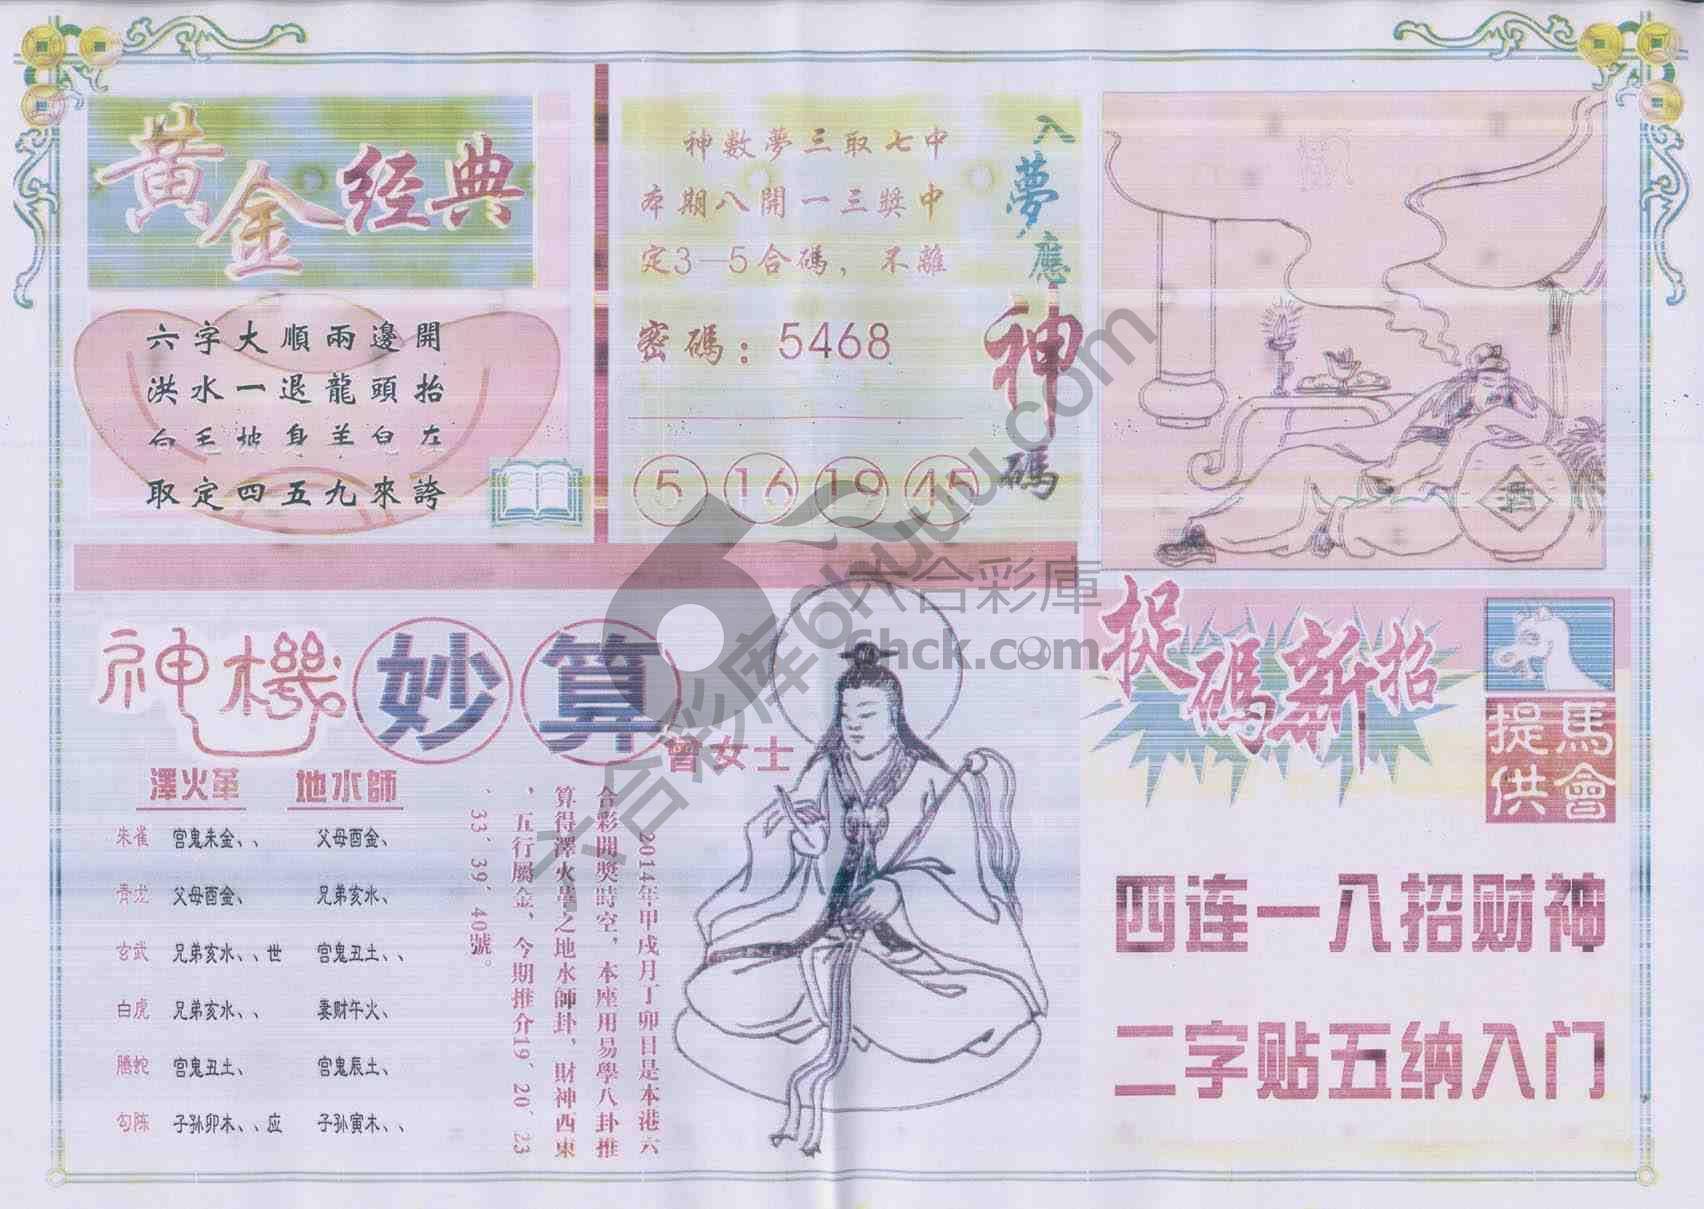 黄金经典
六字大順兩邊開
洪水一退龍頭抬
取定四五九來誇
神數夢三取七中
本期八開一三獎中
定3—5合碼，不離
密碼：5468
5 16 19 45
入夢應神碼
酒
神機妙算
曾女士
澤火革 地水師
朱雀 官鬼未金、、 父母酉金、
青龙 父母酉金、 兄弟亥水、
玄武 兄弟亥水、、世 官鬼丑土、、
白虎 兄弟亥水、、 妻财午火、
騰蛇 官鬼丑土、 官鬼辰土、
勾陈 子孙卯木、、应 子孙寅木、、
2014年甲戌月丁卯日是本港六
合彩開獎時空，本座用易學八卦推
算得澤火革之地水師卦，財神西東
，五行屬金，今期推介19、20、23
、33、39、40號。
捉碼新招
馬會
提供
四连一八招财神
二字贴五纳入门
六合彩庫
6hck.com
六合彩库6huuuu.com